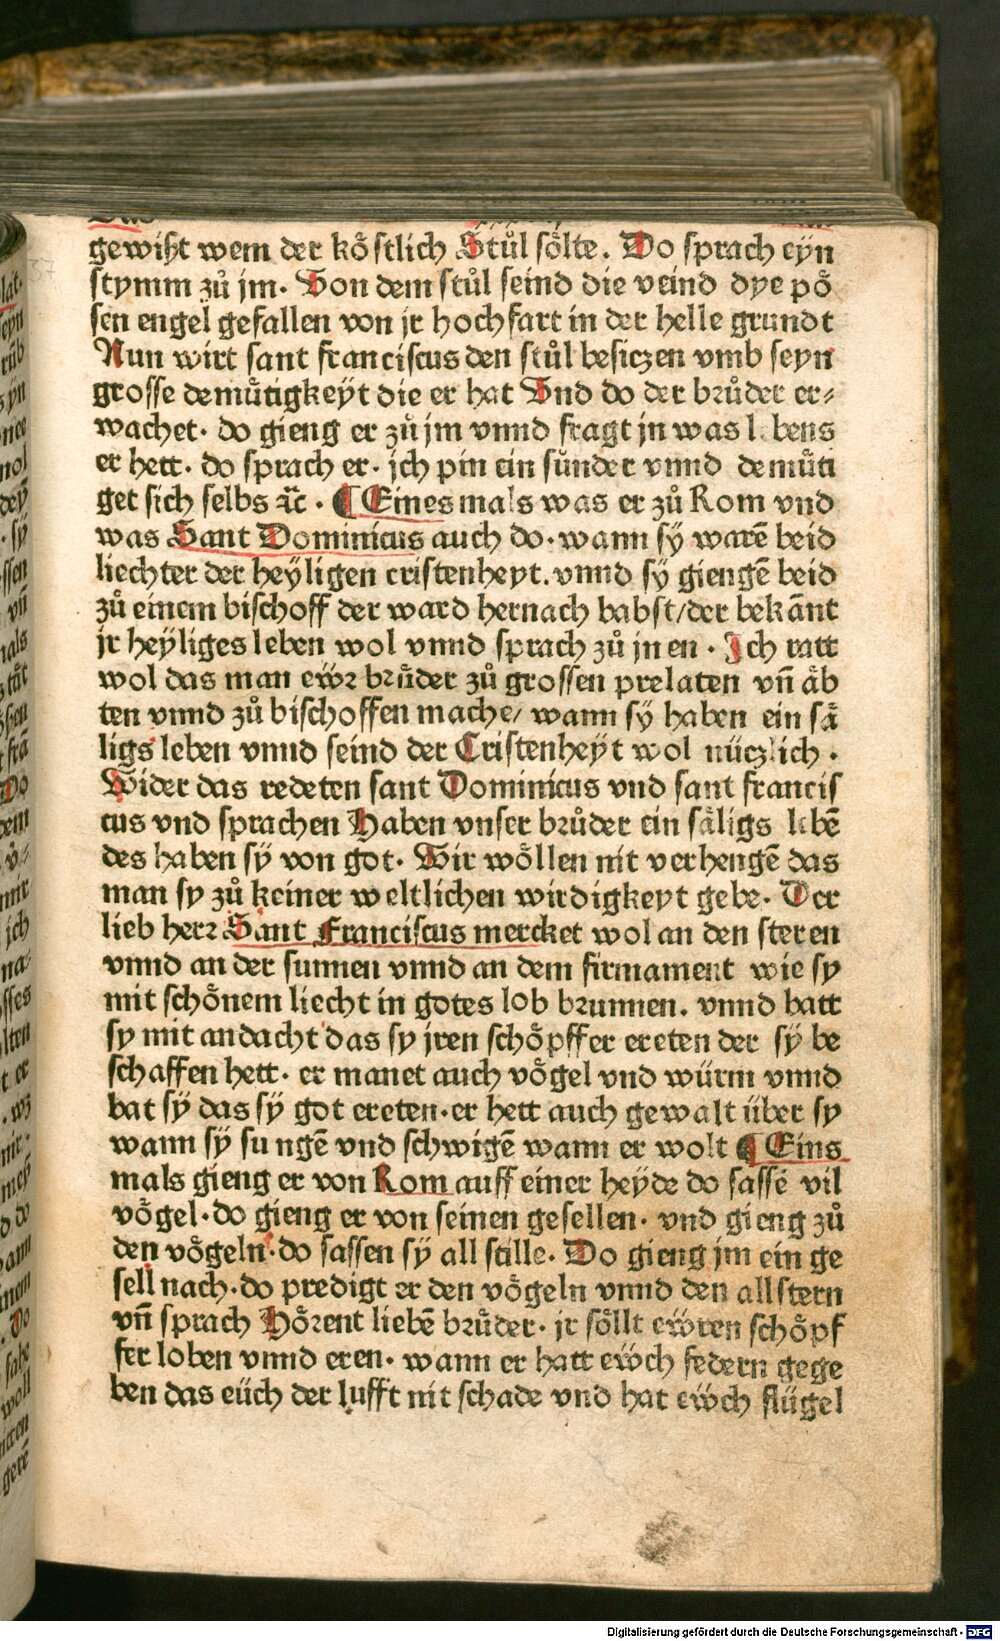 gewißt wem der köstlich Stůl sölte. Do sprach eyn
stymm zů jm. Von dem stůl seind die veind dye pö
sen engel gefallen von jr hochfart in der helle grundt
Nun wirt sant franciscus den stůl besiczen vmb seyn
grosse demůtigkeyt die er hat Vnd do der brůder er⸗
wachet. do gieng er zů jm vnnd fragt jn was lebens
er hett. do sprach er. jch pin ein sünder vnnd demůti
get sich selbs ꝛc̃. ¶ Eines mals was er zů Rom vnd
was Sant Dominicus auch do. wann sÿ warẽ beid
liechter der heÿligen cristenheyt. vnnd sÿ giengẽ beid
zů einem bischoff der ward hernach babst/der bekãnt
jr heÿliges leben wol vnnd sprach zů jnen. Ich ratt
wol das man ewꝛ brůder zů grossen prelaten vñ äb
ten vnnd zů bischoffen mache/ wann sÿ haben ein sä
ligs leben vnnd seind der Cristenheÿt wol nüczlich.
Wider das redeten sant Dominicus vnd sant francis
cus vnd sprachen Haben vnser brůder ein säligs lebẽ
des haben sÿ von got. Wir wöllen nit verhengẽ das
man sy zů keiner weltlichen wirdigkeyt gebe. Der
lieb herꝛ Sant Franciscus mercket wol an den steren
vnnd an der sunnen vnnd an dem firmament wie sy
mit schönem liecht in gotes lob brunnen. vnnd batt
sy mit andacht das sy jren schöpffer ereten der sÿ be
schaffen hett. er manet auch vögel vnd würm vnnd
bat sÿ das sÿ got ereten. er hett auch gewalt über sy
wann sÿ sungẽ vnd schwigẽ wann er wolt ¶ Eins
mals gieng er von Rom auff einer heyde do sasse vil
vögel. do gieng er von seinen gesellen. vnd gieng zů
den vögeln. do sassen sÿ all stille. Do gieng jm ein ge
sell nach. do predigt er den vögeln vnnd den allstern
vñ sprach Hörent liebẽ brůder. jr söllt ewren schöpf
fer loben vnnd eren. wann er hatt ewch federn gege
ben das eüch der lufft nit schade vnd hat ewch flügel
Digitalisierung gefördert durch die Deutsche Forschungsgemeinschaft - DFG